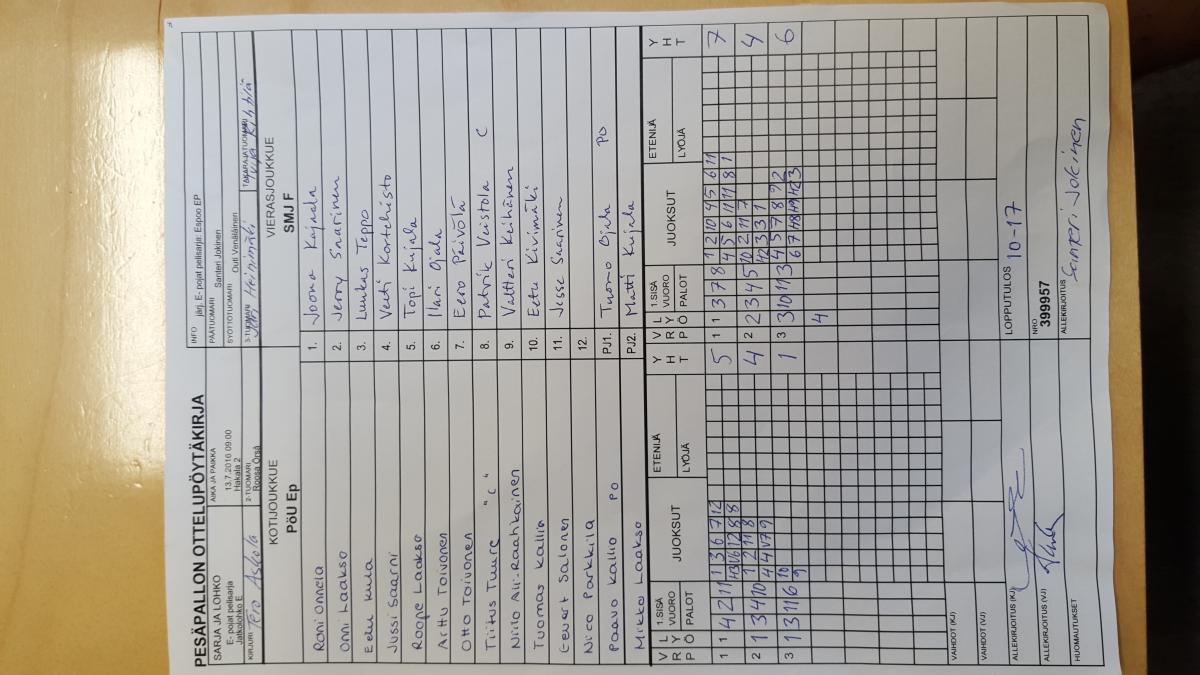 PESÄPALLON OTTELUPÖYTÄKIRJA
SARJA JA LOHKO
E- pojat pelisarja
Jatkolohko E
AIKA JA PAIKKA
13.7.2016 09:00
Hakala 2
INFO järj. E- pojat pelisarja: Espoo EP
PÄÄTUOMARI Santeri Jokinen
SYÖTTÖTUOMARI Outi Venäläinen
KIRJURI Tero Askola
2-TUOMARI
Roosa Örså
3-TUOMARI
TAKARAJATUOMARI
KOTIJOUKKUE
PöU Ep
VIERASJOUKKUE
SMJ F
Roni Onnela 1. Joona Kajnala
Onni Laakso 2. Jerry Snarinen
Eelu Kuula 3. Luukas Teppo
Jussi Saarni 4. Veeti Kortehisto
Roope Laakso 5. Topi Kujala
Arttu Toivonen 6. Ilari Ojala
Otto Toivonen 7. Eero Päivölä
Tiitus Tuure "C" 8. Patrik Veistola C
Niilo Ali-Raahkainen 9. Valtteri Keihänen
Tuomas Kallio 10. Eetu Kivimäki
Eevert Salonen 11. Jesse Saarinen
Nico Parkkila 12.
Paavo Kallio PO PJ1. Tuomo Ojala PO
Mikko Laakso PJ2. Matti Kujala
V R L Y P Ö 1.SISÄ VUORO PALOT JUOKSUT ETENIJÄ LYÖJÄ Y H T
V R L Y P Ö 1.SISÄ VUORO PALOT JUOKSUT ETENIJÄ LYÖJÄ Y H T
1 1 4 2 11 1 3 6 7 12 5 1 1 3 7 8 1 2 10 4 5 6 11 7
4 5 6 11 11 8 1
2 1 3 4 10 1 2 11 8 4 2 2 3 4 5 10 2 11 7 4
3 1 3 11 6 10 1 3 3 10 11 3 4 5 7 8 9 2 6
9
4
VAIHDOT (KJ)
VAIHDOT (VJ)
ALLEKIRJOITUS (KJ)
LOPPUTULOS 10-17
ALLEKIRJOITUS (VJ)
NRO
399957
HUOMAUTUKSET
ALLEKIRJOITUS Santeri Jokinen